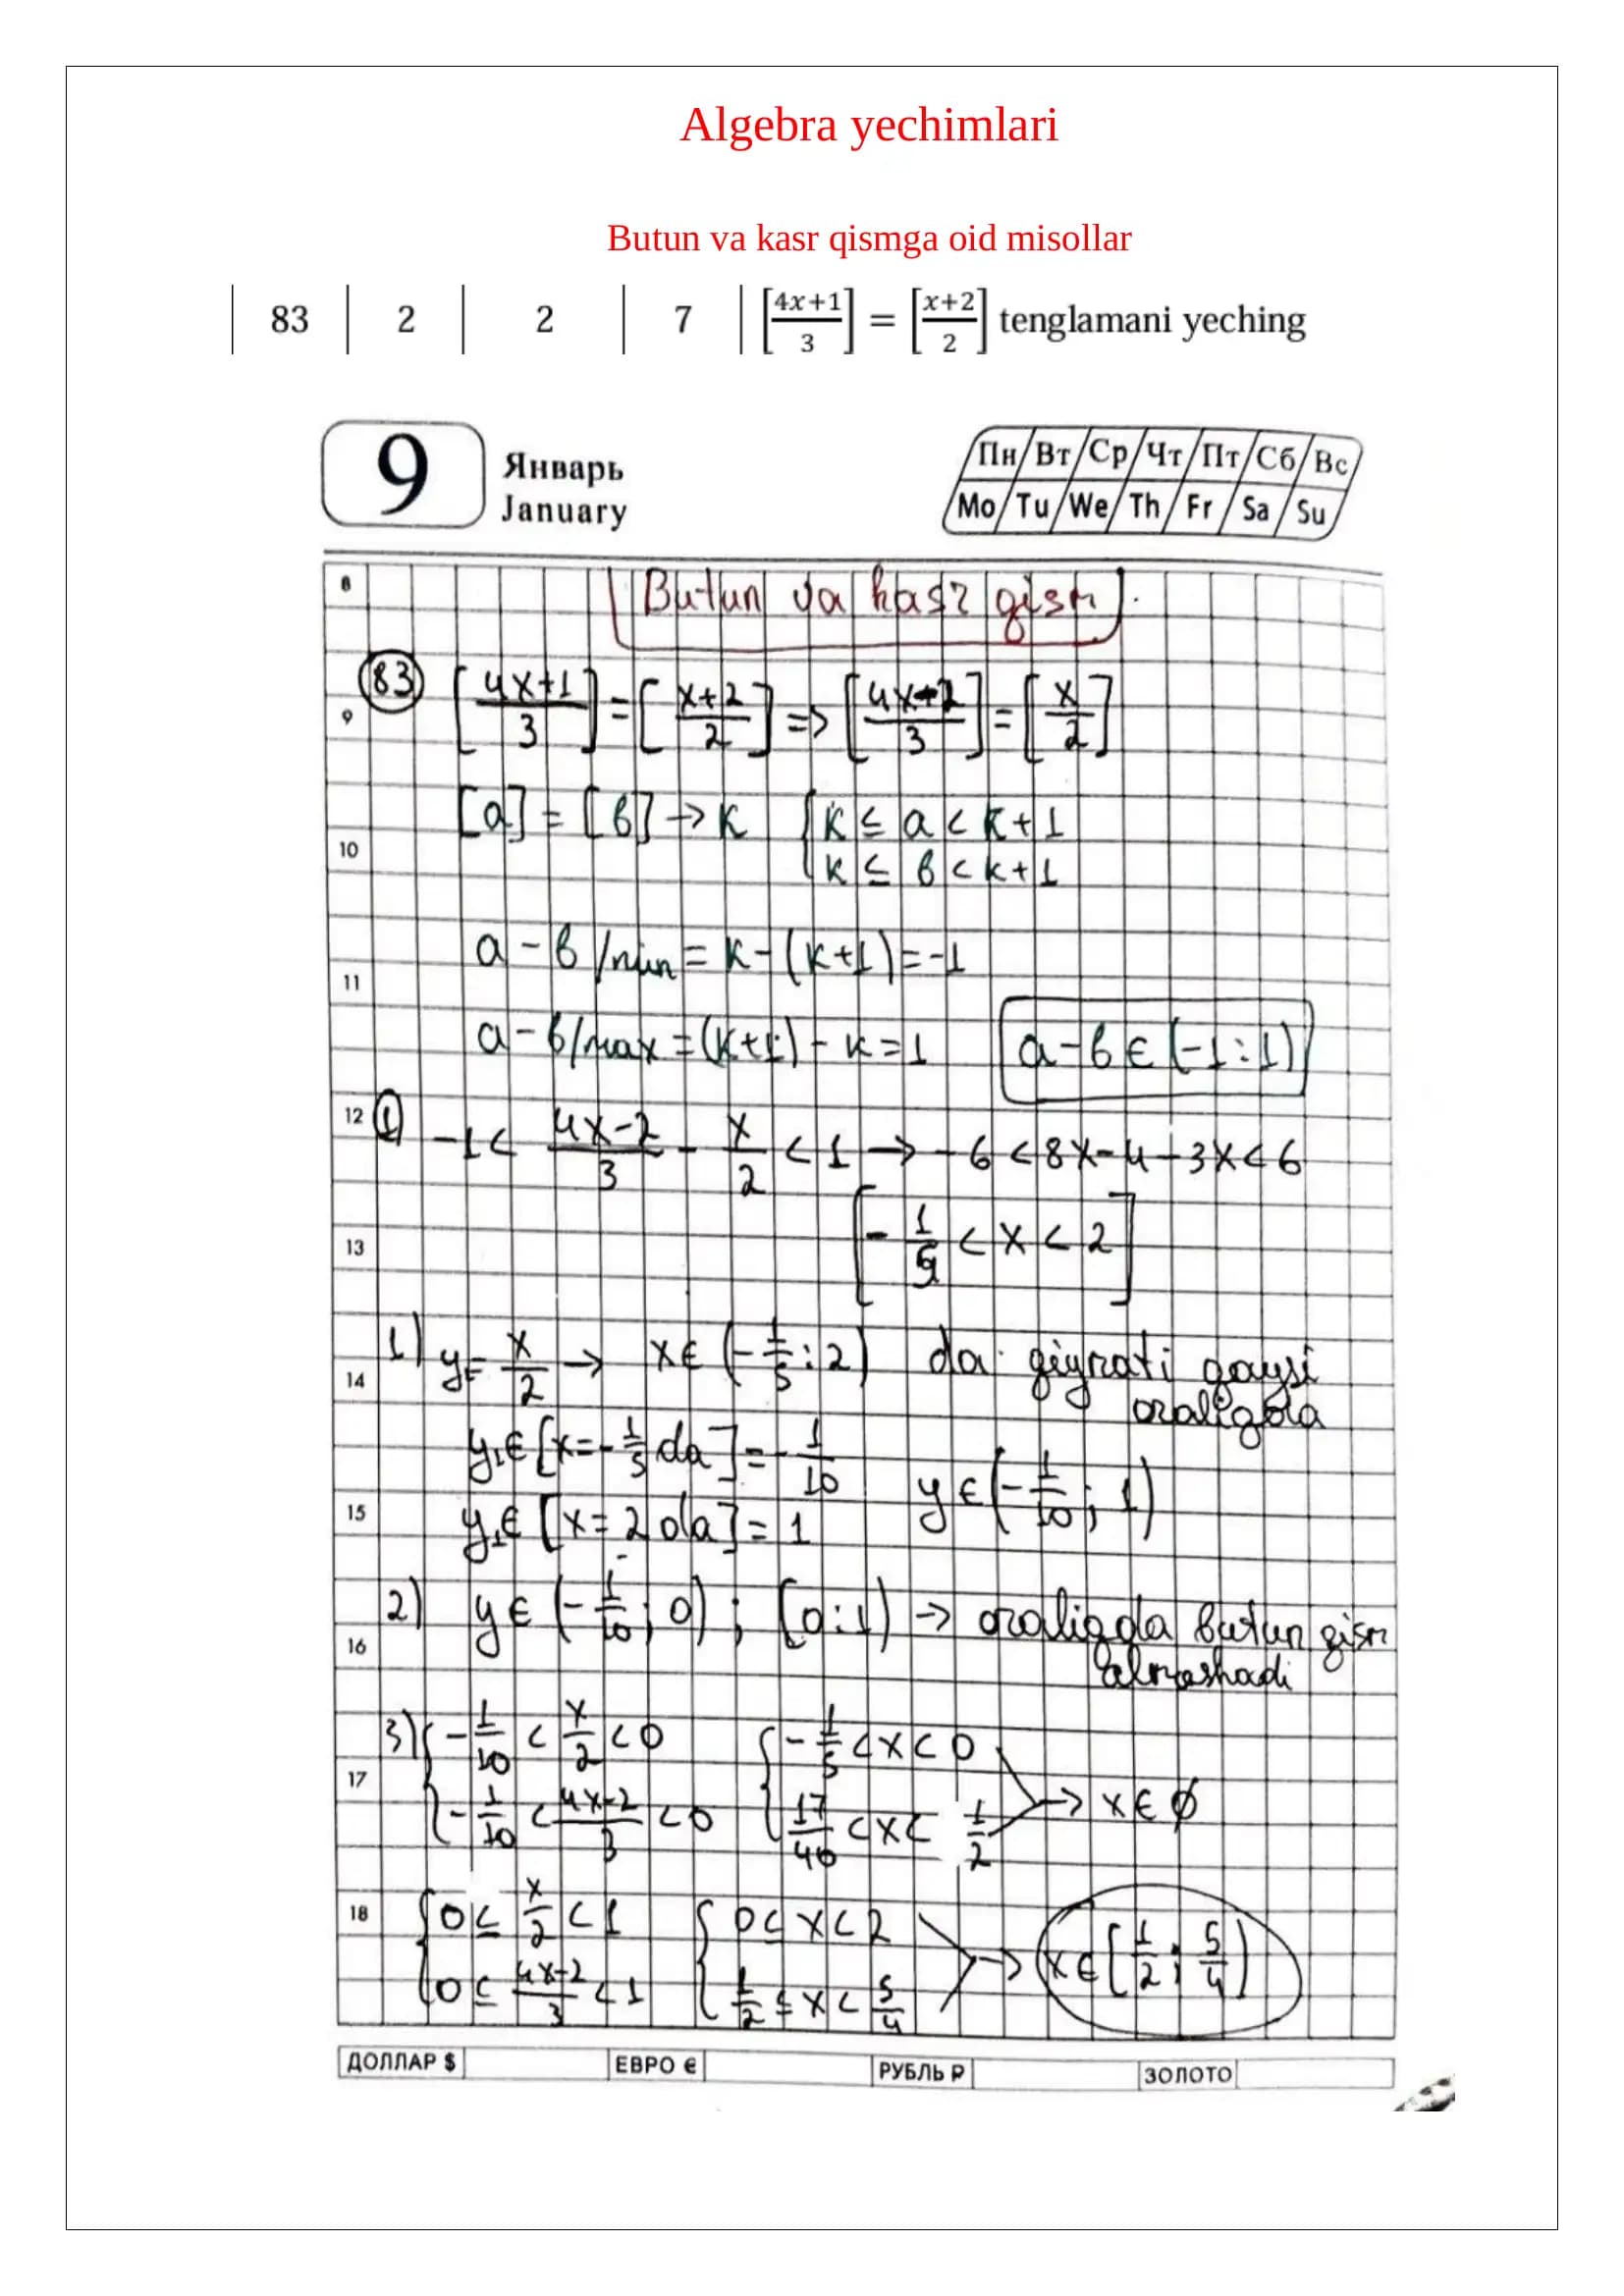 Algebra yechimlari
Butun va kasr qismga oid misollar
83 | 2 | 2 | 7 | [4x+1/3] = [x+2/2] tenglamani yeching
9 Январь January
Пн Вт Ср Чт Пт Сб Вс
Mo Tu We Th Fr Sa Su
8
Butun va kasr qism.
83 [4x+1/3] = [x+2/2] => [4x-2/3] = [x/2]
9
[a] = [b] → k { k ≤ a < k+1
k ≤ b < k+1
10
a - b/min = k - (k+1) = -1
11
a - b/max = (k+1) - k = 1 a-b ∈ (-1:1)
12 ① -1 < 4x-2/3 - x/2 < 1 → -6 < 8x-4-3x < 6
[-1/5 < x < 2]
13
1) y = x/2 → x ∈ (-1/5 : 2) da qiymati qaysi
14
oraliqda
y₁ ∈ [x = -1/5 da] = -1/10 y ∈ (-1/10 ; 1)
15
y₁ ∈ [x = 2 da] = 1
2) y ∈ (-1/10 ; 0) ; [0:1) → oraliqda butun qism
16
almashadi
3) { -1/10 < x/2 < 0 { -1/5 < x < 0
17
-1/10 < 4x-2/3 < 0 17/40 < x < 1/2 → x ∈ ∅
18 { 0 ≤ x/2 < 1 { 0 ≤ x < 2
0 ≤ 4x-2/3 < 1 1/2 ≤ x < 5/4 → x ∈ [1/2 ; 5/4)
ДОЛЛАР $ ЕВРО € РУБЛЬ ₽ ЗОЛОТО